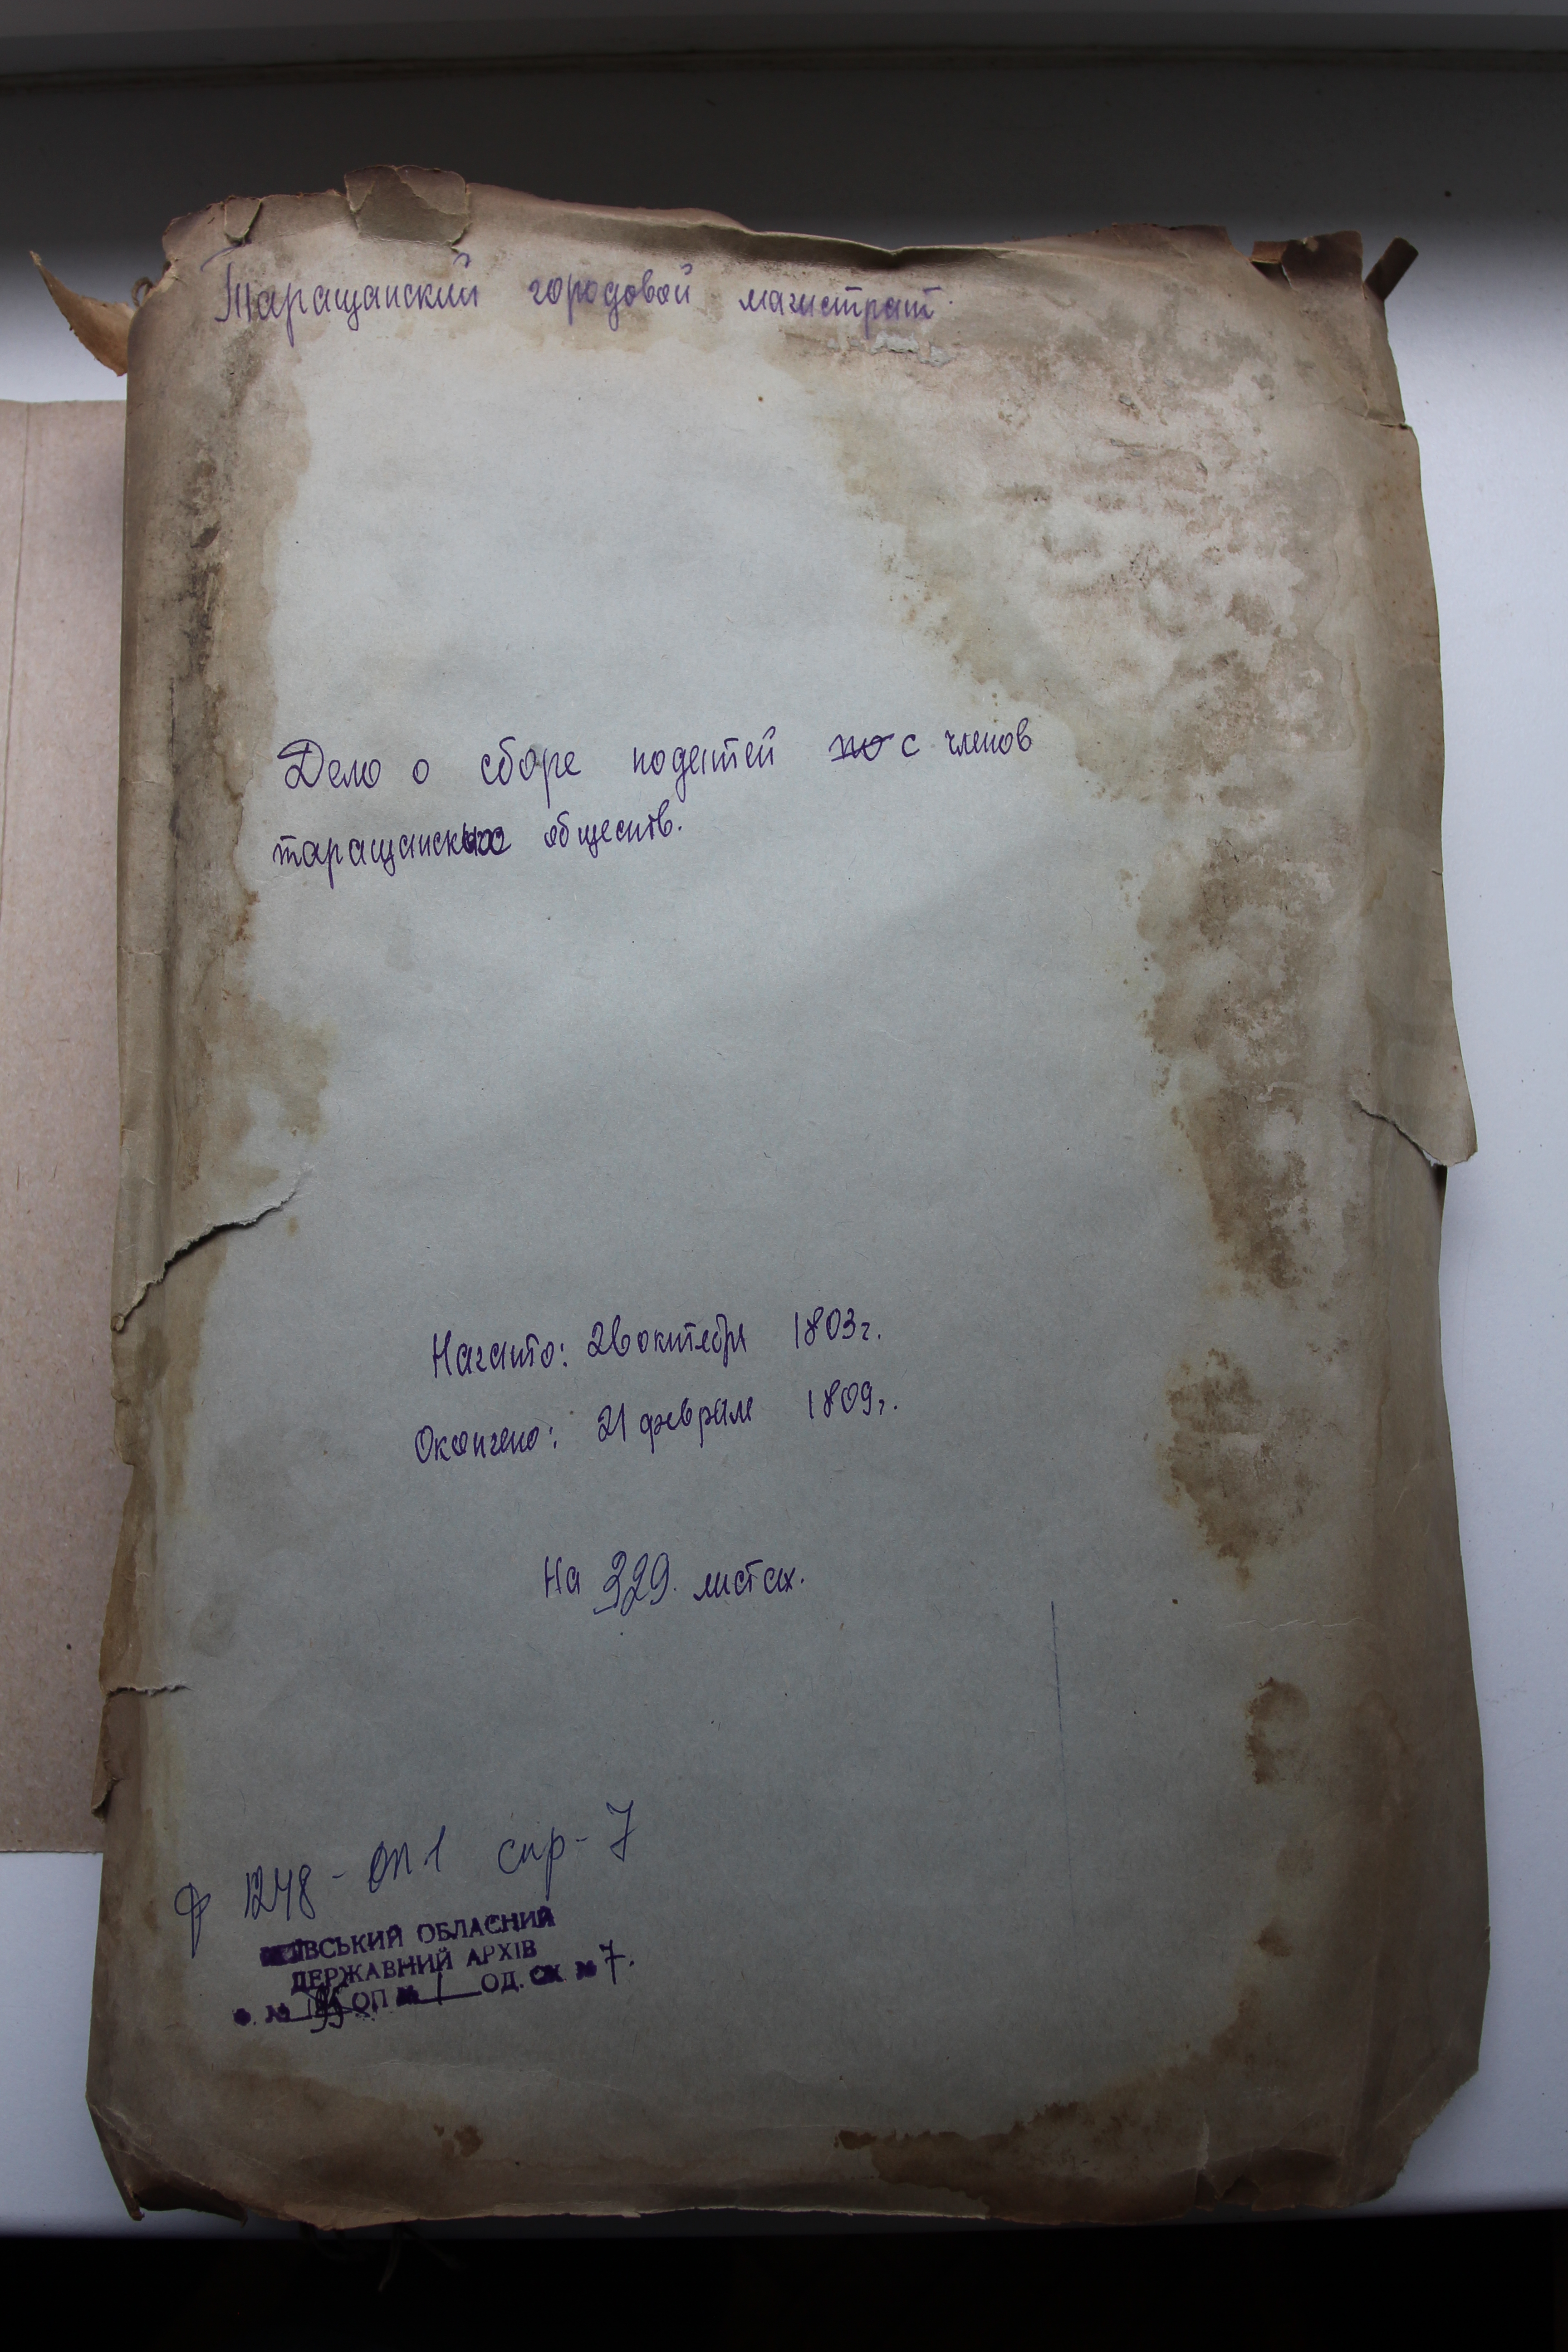 Таращанский городовой магистрат.
Дело о сборе податей по с членов
таращанских обществ.
Начато: 26 октября 1803 г.
Окончено: 21 февраля 1809 г.
На 329. листах.
Ф 1248 - оп 1 спр - 7
ДЕРЖАВНИЙ АРХІВ ОБЛАСНИЙ
ОП № 1 ОД. СХ. № 7.